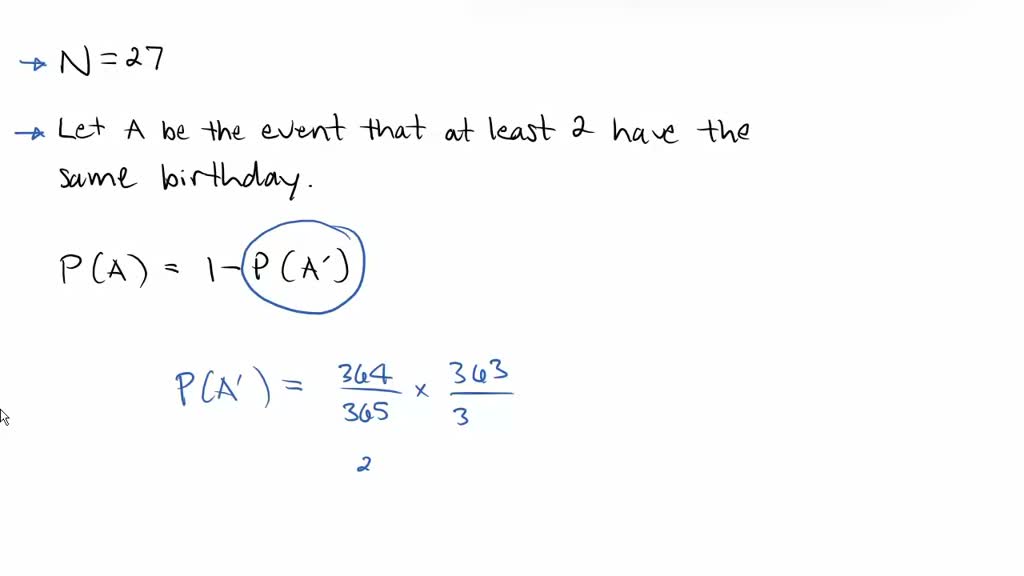 → N = 27
→ Let A be the event that at least 2 have the
same birthday.
P(A) = 1 - P(A')
P(A') = 364/365 × 363/3
2